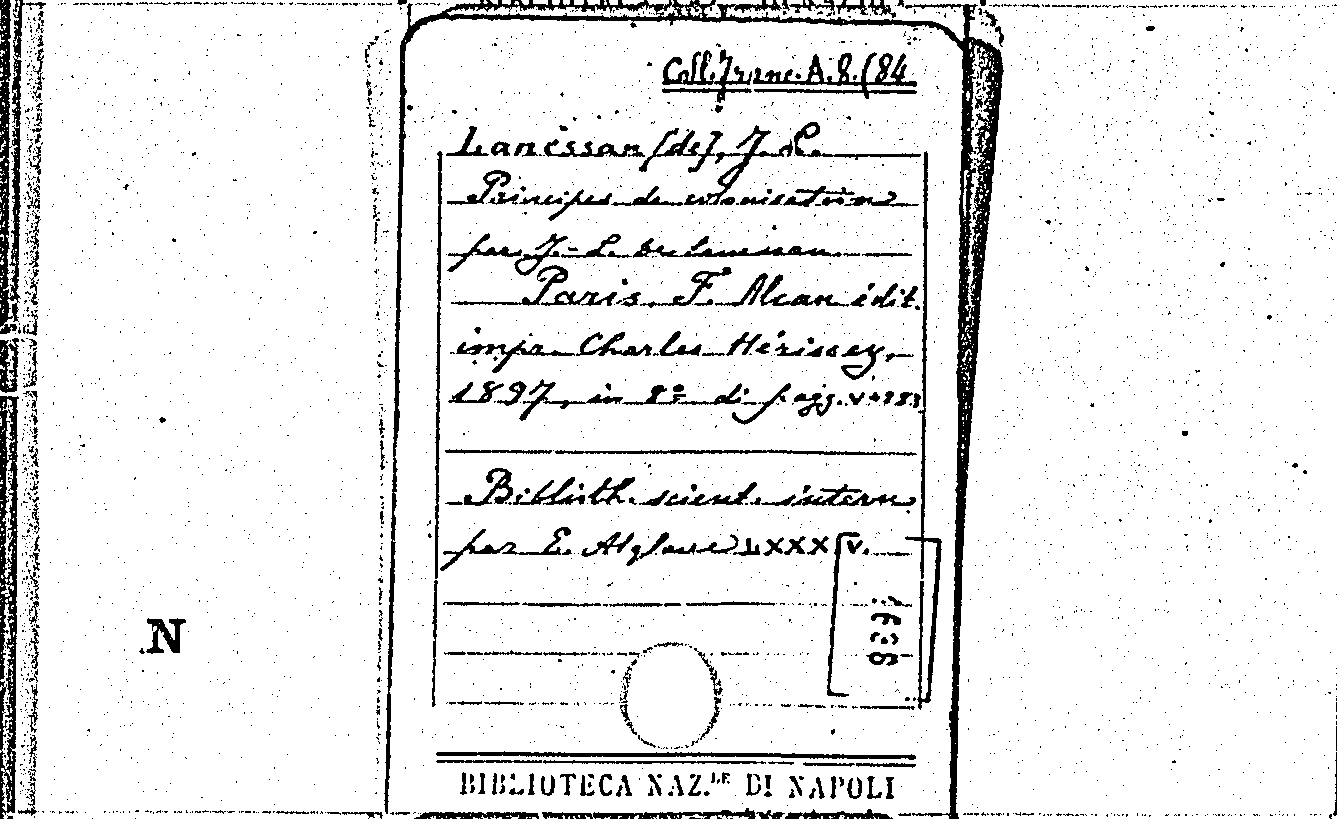 Coll. Franc. A. 8. (84
Lanessan [de], J. L.
Principes de colonisation
par J.-L. de Lanessan.
Paris. F. Alcan édit.
impr. Charles Hérissey,
1897, in 8º di pagg. V+283
Biblioth. scient. intern
par E. Alglave LXXXV.
N
BIBLIOTECA NAZ.LE DI NAPOLI